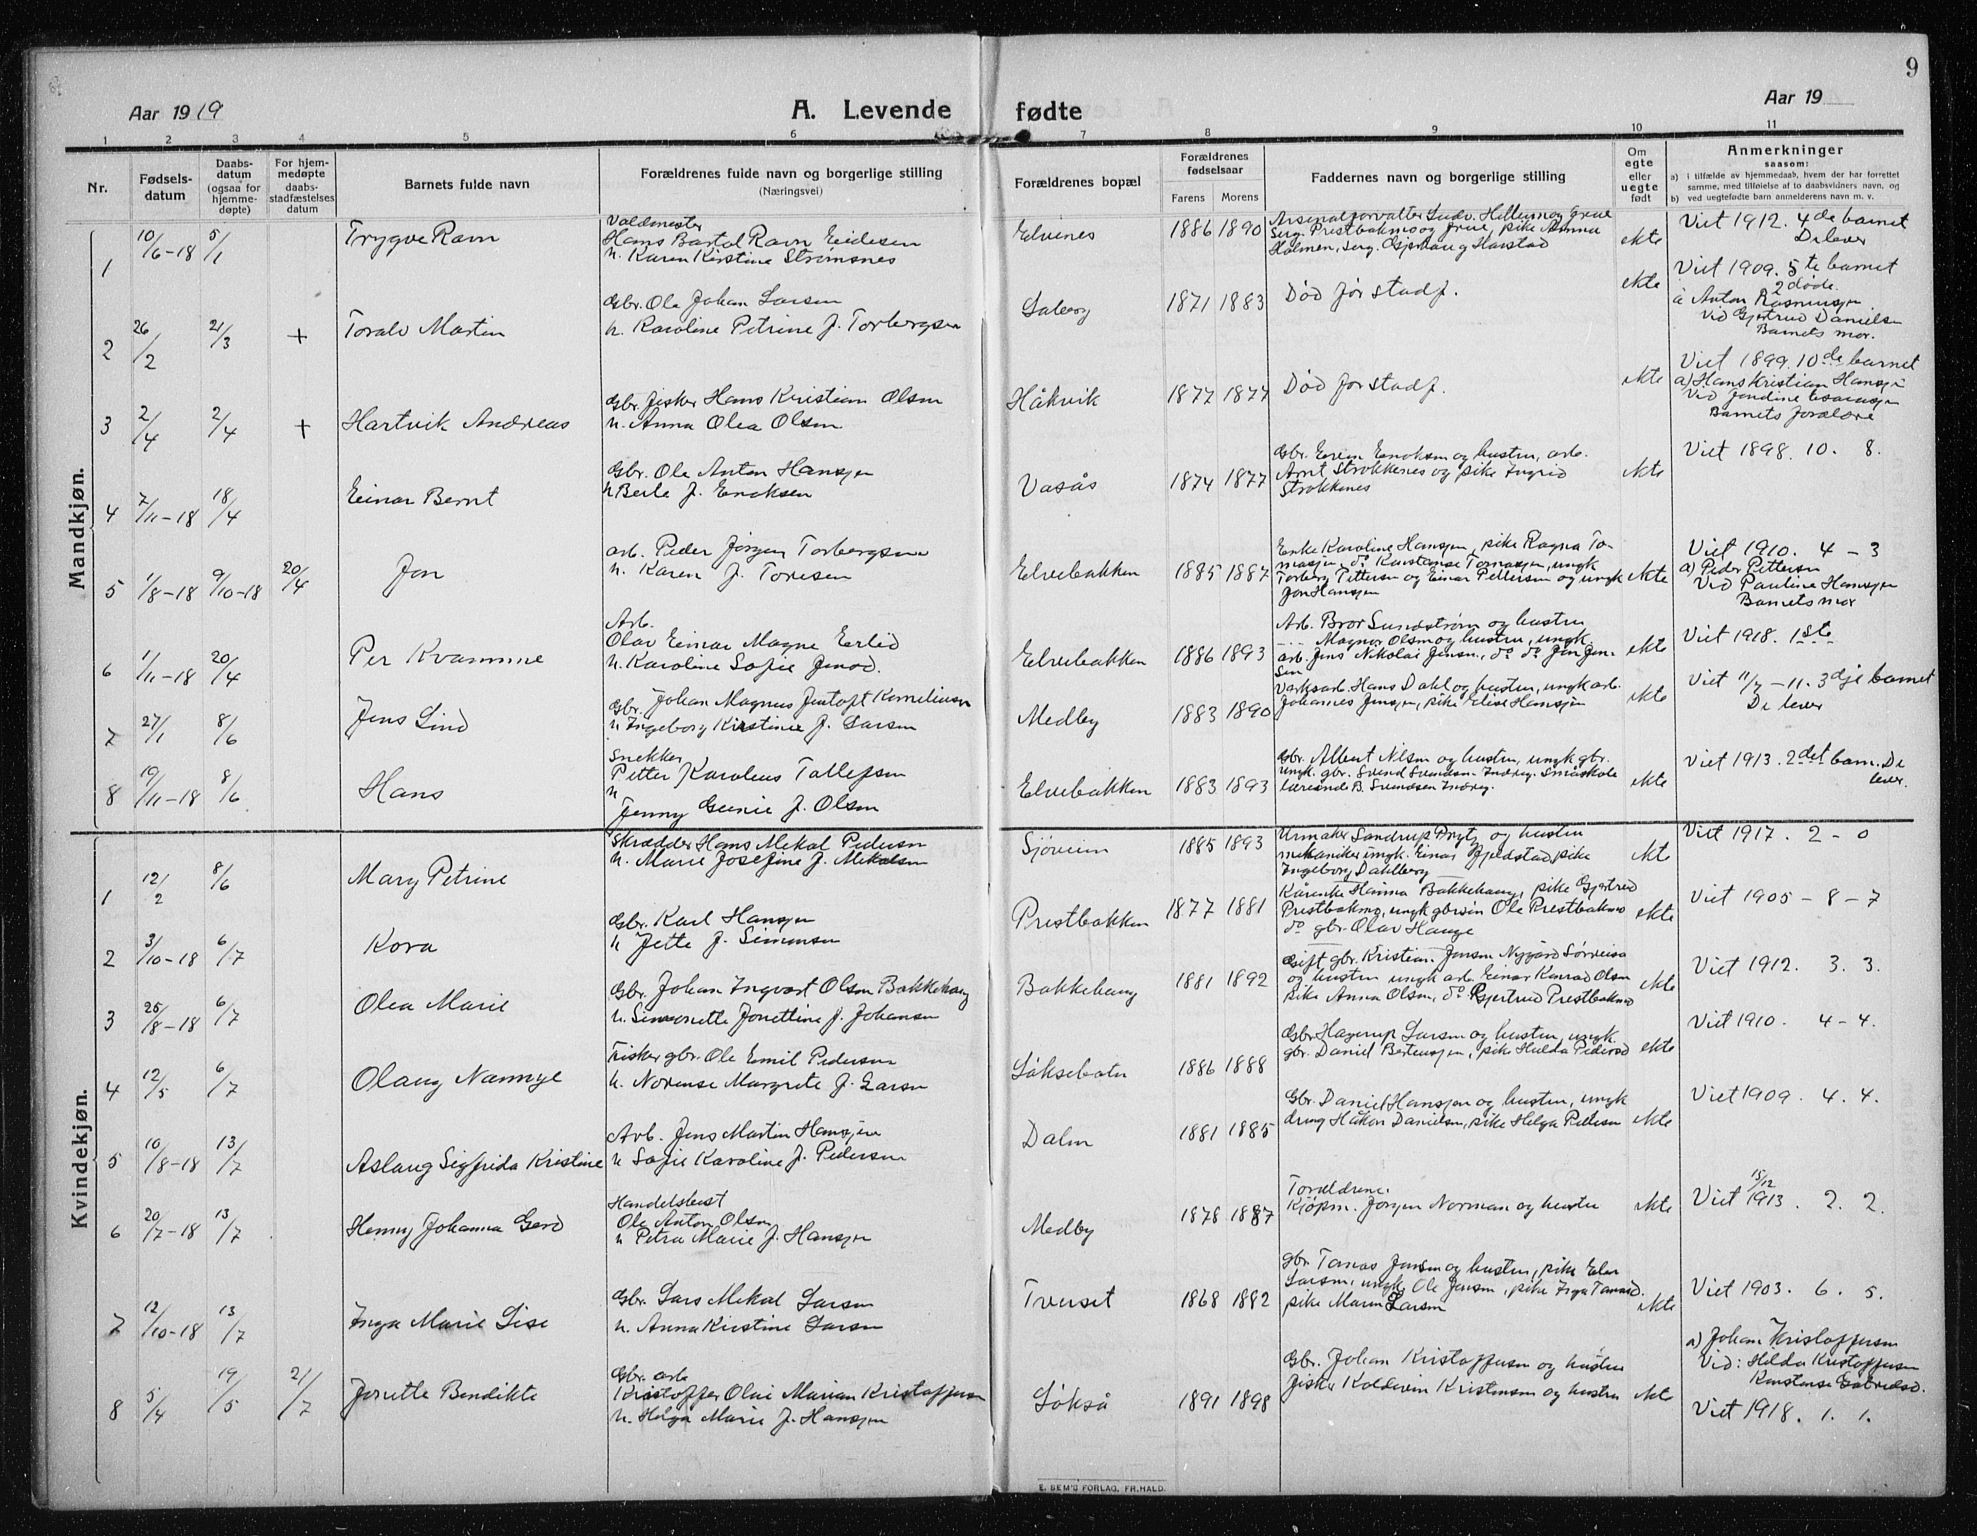 9
Aar 1919
A. Levende fødte
Aar 19
1 2 3 4 5 6 7 8 9 10 11
Nr.
Fødsels-
datum
Daabs-
datum
(ogsaa for
hjemme-
døpte)
For hjem-
medøpte
daabs-
stadfæstelses
datum
Barnets fulde navn
Forældrenes fulde navn og borgerlige stilling
(Næringsvei)
Forældrenes bopæl
Forældrenes
fødselsaar
Farens Morens
Faddernes navn og borgerlige stilling
Om
egte
eller
uegte
født
Anmerkninger
saasom:
a) i tilfælde av hjemmedaab, hvem der har forrettet
samme, med tilføielse af to daabsvidners navn, og
b) ved uegtefødte barn anmelderens navn m. v.
Mandkjøn.
1 10/6-18 5/1 Trygve Ravn
Hans Bartol Ravn Eidesen
h. Karen Kirstine Strømsnes
Elvenes 1886 1890
Holmen, serg. og Harstad
ekte
Viet 1912. 4de barnet
De lever
2 26/2 21/3 + Toralv Martin
Gbr. Ole Johan Larsen
h. Karoline Petrine f. Torbergsen
Saberg 1871 1883
Død før stadf.
ekte
Viet 1909. 5te barnet
2 døde.
a Anton Rasmussen
Ved Gjertrud Danielsen
Barnets mor.
3 2/4 2/4 + Hartvik Andreas
Gbr. fisker Hans Kristian Olsen
h. Anna Olea Olsen
Håkvik 1877 1877
Død før stadf.
ekte
Viet 1899. 10de barnet
a) Hans Kristian Hansen
Barnets forældre
4 7/11-18 18/4 Einar Bernt
Gbr. Ole Anton Hansen
h Berle f. Eriksen
Vasås 1874 1877
Gbr. og hustru, arb.
Arnt Strokkenes og pike Ingrid
Strokkenes
ekte
Viet 1898. 10. 8.
5 1/8-18 9/10-18 20/4 Jon
arb. Peder Jørgen Torbergsen
h. Karen f. Toresen
Elvebakken 1885 1887
Enke Karoline Hansen, pike Ragna To-
masen, do Konstanse Tomassen, ungk
Torberg Pettersen og Einar Pettersen og ungk
Jon Hansen
ekte
Viet 1910. 4 - 3
a) Peder Pettersen
Ved Pauline Hansen
Barnets mor
6 1/11-18 20/4 Per Kvamme
Arb.
Olav Einar Magne Erlid
h. Karoline Sofie
Elvebakken 1886 1893
Arb. Bror Sundstrøm og hustru
Magnor Olsen og hustru, ungk.
arb. Jens Nikolai Jensen, do do Jon Jen-
sen
ekte
Viet 1918. 1ste
7 27/1 8/6 Jens Lind
Gbr. Johan Magnus Jentoft Korneliusen
h Ingeborg Kirstine f. Larsen
Medby 1883 1890
Verksarb. Hans Dahl og hustru, ungk arb.
Johannes Jensen, pike Elise Hansen
ekte
Viet 11/7 - 11. 3dje barnet
De lever
8 19/11-18 8/6 Hans
Snekker
Petter Karolius Tollefsen
h
Jenny f. Olsen
Elvebakken 1883 1893
Gbr. Albert Nilsen og hustru, ungk gbr.
ungk. gbr. Svend Svendsen Indreg. Småskole
lærerinde B. Svendsen Indreg.
ekte
Viet 1913. 2det barn. De
lever.
Kvindekjøn.
1 12/2 8/6 Mary Petrine
Skrædder Hans Mekal Pedersen
h. Marie Josefine f. Mekalsen
Sjøveien 1885 1893
Urmaker Sandrup og hustru
mekaniker ungk. Einar Fjeldstad, pike
Ingeborg Dahlberg
ekte
Viet 1917. 2 - 0
2 3/10-18 6/7 Kora
Gbr. Karl Hansen
h Jette f. Simonsen
Prestbakken 1877 1881
Kårenke Hanna Bakkehaug, pike Gjertrud
Prestbakmo, ungk gbrsøn Ole Prestbakmo
do gbr. Olav Hauge
ekte
Viet 1905 - 8 - 7
3 25/8-18 6/7 Olea Marie
Gbr. Johan Ingvart Olsen Bakkehaug
h. Simonette Jonettine f. Johansen
Bakkehaug 1881 1892
Gift gbr. Kristian Jensen Nygård Sørreisa
og hustru ungk arb. Einar Konrad Olsen
pike Anna Olsen, do Gjertrud Prestbakmo
ekte
Viet 1912. 3. 3.
4 12/5 6/7 Olaug Nannye
Fisker gbr. Ole Emil Pedersen
h. Norense Margrete f. Larsen
Løksebotn 1886 1888
Gbr Hagerup Larsen og hustru ungk
gbr. Daniel Bertensen, pike Hulda Pedersen
ekte
Viet 1910. 4 - 4.
5 10/8-18 13/7 Aslaug Sigfrida Kristine
Arb. Jens Martin Hansen
h Sofie Karoline f. Pedersen
Dalen 1881 1885
Gbr. Daniel Hansen og hustru, ungk
dreng Håkon Danielsen, pike Helga Pedersen
ekte
Viet 1909. 4. 4.
6 20/7-18 13/7 Henny Johanna Gerd
Handelsbest
Ole Anton Olsen
h Petra Marie f. Hansen
Medby 1878 1887
Forældrene.
Kjøpm. Jørgen Norman og hustru
ekte
Viet 15/12 1913. 2. 2.
7 12/10-18 13/7 Inga Marie Lise
Gbr. Lars Mekal Larsen
h. Anna Kirstine Larsen
Tverset 1868 1882
gbr Tomas Jensen og hustru, pike Elen
Larsen, ungk, Ole Jensen, pike Inga
pike Maren Larsen
ekte
Viet 1903. 6. 5.
8 5/4 19/5 21/7 Jonette Bendikte
Gbr. arb
Kristoffer Olai Marian Kristoffersen
h. Helga Marie f. Hansen
Løkså 1891 1898
Gbr. Johan Kristoffersen og hustru
fisker Koldevin Kristensen og hustru
ekte
a) Johan Kristoffersen
Vid: Hilda Kristoffersen
Konstanse
Viet 1918. 1. 1.
E. SEM'S FORLAG, FR.HALD.